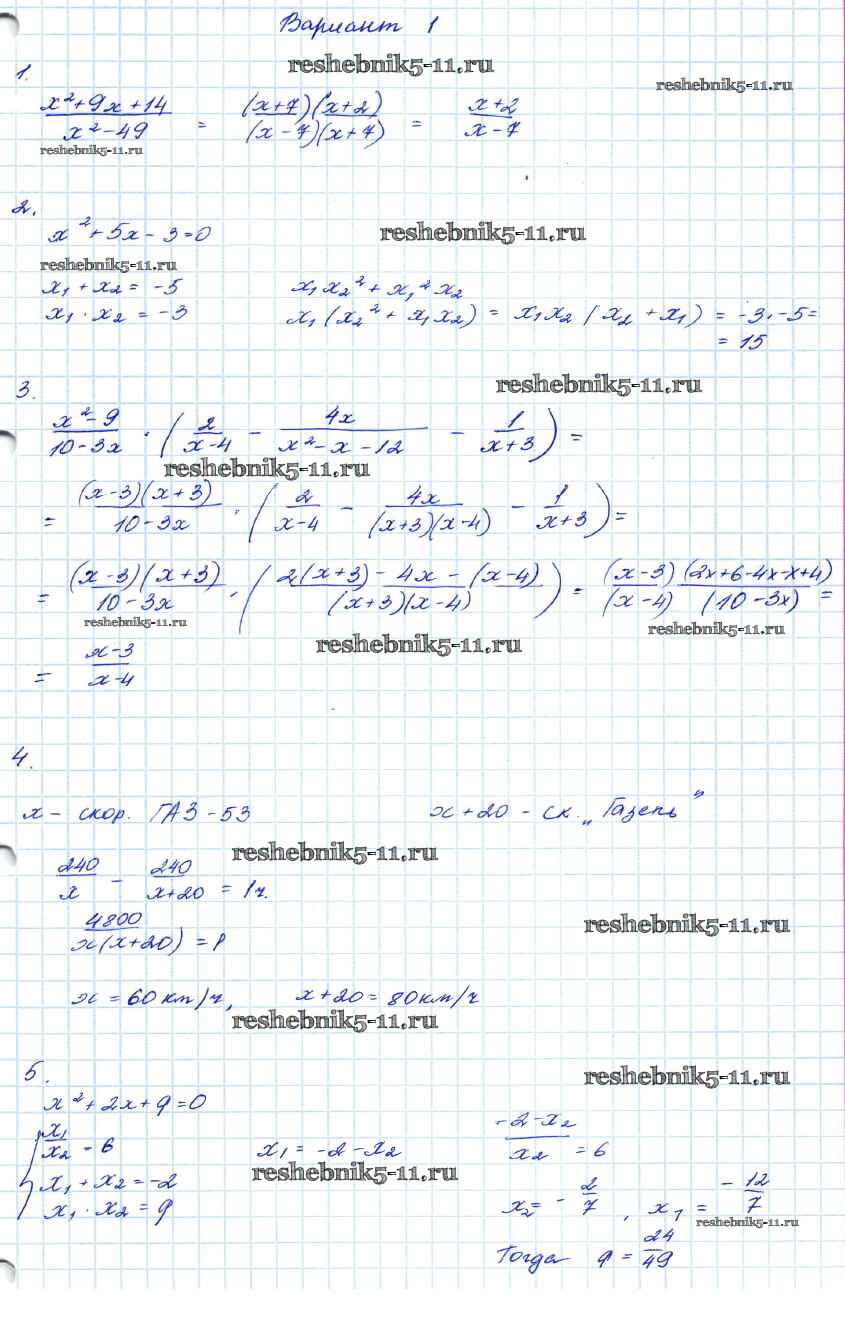 Вариант 1
reshebnik5-11.ru
reshebnik5-11.ru
1.
(x²+9x+14)/(x²-49) = ((x+7)(x+2))/((x-7)(x+7)) = (x+2)/(x-7)
reshebnik5-11.ru
2.
x²+5x-3=0
reshebnik5-11.ru
reshebnik5-11.ru
x₁+x₂=-5     x₁x₂²+x₁²x₂
x₁·x₂=-3     x₁(x₂²+x₁x₂) = x₁x₂(x₂+x₁) = -3·-5=
= 15
3.
reshebnik5-11.ru
(x²-9)/(10-3x) · (2/(x-4) - 4x/(x²-x-12) - 1/(x+3)) =
reshebnik5-11.ru
= ((x-3)(x+3))/(10-3x) · (2/(x-4) - 4x/((x+3)(x-4)) - 1/(x+3)) =
= ((x-3)(x+3))/(10-3x) · ((2(x+3)-4x-(x-4))/((x+3)(x-4))) = ((x-3)(2x+6-4x-x+4))/((x-4)(10-3x)) =
reshebnik5-11.ru
reshebnik5-11.ru
reshebnik5-11.ru
= (x-3)/(x-4)
4.
x - скор. ГАЗ-53     x+20 - ск. „Газель"
reshebnik5-11.ru
240/x - 240/(x+20) = 1ч.
4800/(x(x+20)) = 1
reshebnik5-11.ru
x = 60 км/ч,     x+20 = 80 км/ч
reshebnik5-11.ru
5.
reshebnik5-11.ru
x²+2x+q=0
x₁/x₂ = 6     x₁ = -2-x₂     (-2-x₂)/x₂ = 6
reshebnik5-11.ru
x₁+x₂=-2
x₁·x₂=q     x₂= -2/7, x₁ = -12/7
reshebnik5-11.ru
Тогда q = 24/49